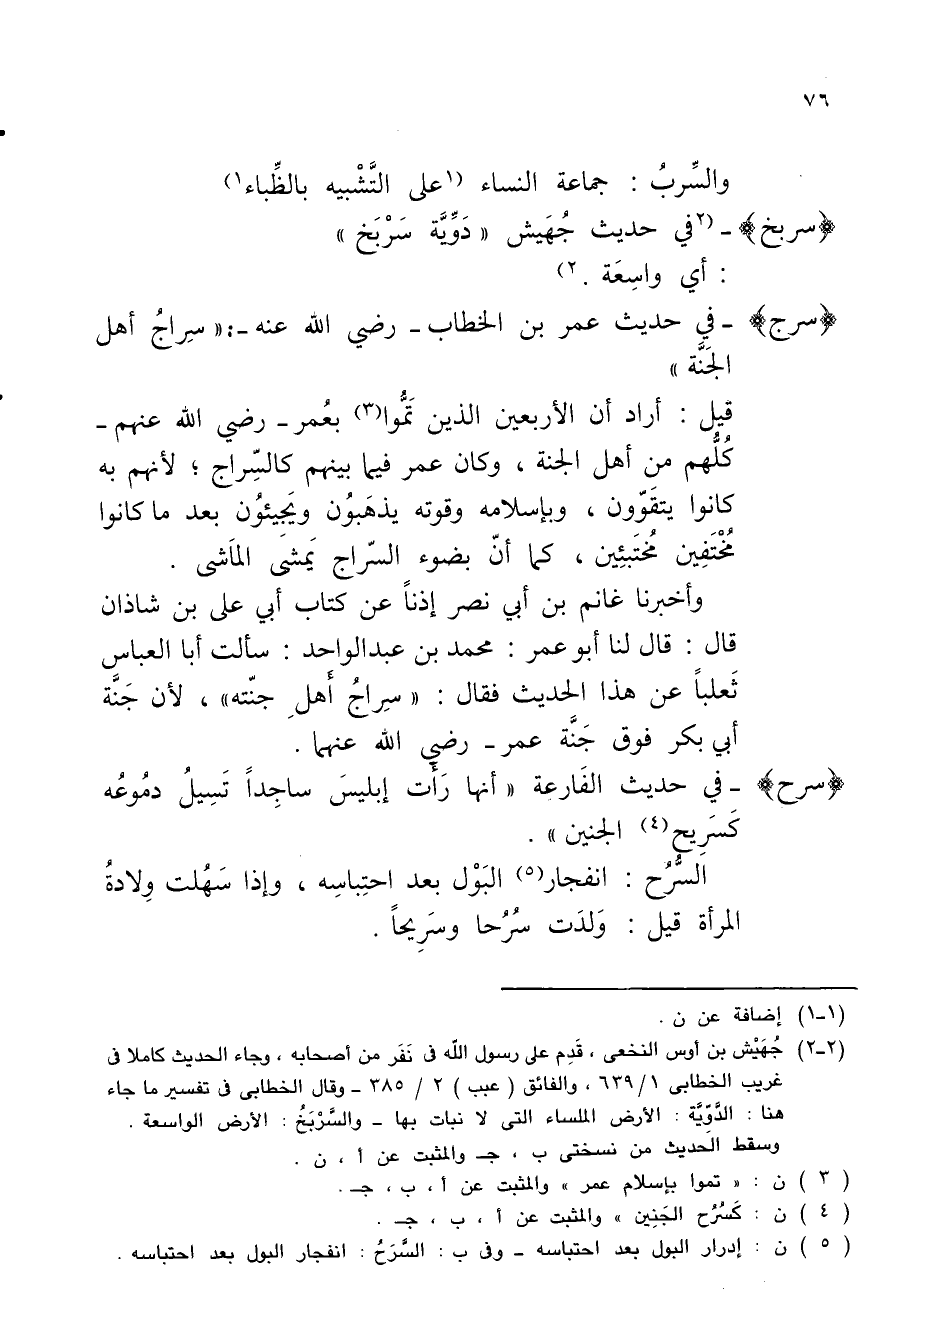 ٧٦
والسِّربُ : جماعة النساء (١على التَّشْبيه بالظِّباء١)
﴿سربخ﴾ ـ (٢في حديث جُهَيش « دَوِّيَّة سَرْبَخ »
: أي واسِعَة . ٢)
﴿سرج﴾ ـ في حديث عمر بن الخطاب ـ رضي الله عنه ـ: « سِراجُ أهل
الجَنَّة »
قيل : أراد أن الأربعين الذين تَمُّوا(٣) بعُمر ـ رضي الله عنهم ـ
كُلُّهم من أهل الجنة ، وكان عمر فيما بينهم كالسِّراج ؛ لأنهم به
كانوا يتقَوّون ، وبإسلامه وقوته يذهَبُون ويَجيئُون بعد ما كانوا
مُخْتَفِين مُخْتَبئِين ، كما أنّ بضوء السّراج يَمشى المَاشى .
وأخبرنا غانم بن أبي نصر إذناً عن كتاب أبي على بن شاذان
قال : قال لنا أبو عمر : محمد بن عبدالواحد : سألت أبا العباس
ثَعلباً عن هذا الحديث فقال : « سِراجُ أَهلِ جنّته» ، لأن جَنَّة
أبي بكر فوق جَنَّة عمر ـ رضي الله عنهما .
﴿سرح﴾ ـ في حديث الفَارعة « أنها رَأَت إبليسَ ساجِداً تَسِيلُ دمُوعُه
كَسَرِيح(٤) الجنين » .
السُّرُح : انفجار(٥) البَوْل بعد احتِباسِه ، وإذا سَهُلت وِلادةُ
المرأة قيل : وَلَدَت سُرُحا وسَرِيحاً .
(١-١) إضافة عن ن .
(٢-٢) جُهَيْش بن أوس النخعى ، قَدِم على رسول الله فى نَفَر من أصحابه ، وجاء الحديث كاملا فى
غريب الخطابى ١/ ٦٣٩ ، والفائق ( عبب ) ٢ / ٣٨٥ ـ وقال الخطابى فى تفسير ما جاء
هنا : الدَّوِّيَّة : الأرض الملساء التى لا نبات بها ـ والسَّرْبَخُ : الأرض الواسعة .
وسقط الحديث من نسختى ب ، جـ والمثبت عن أ ، ن .
( ٣ ) ن : « تموا بإسلام عمر » والمثبت عن أ ، ب ، جـ .
( ٤ ) ن : كَسُرُح الجَنِين » والمثبت عن أ ، ب ، جـ .
( ٥ ) ن : إدرار البول بعد احتباسه ـ وفى ب : السَّرَحُ : انفجار البول بعد احتباسه .